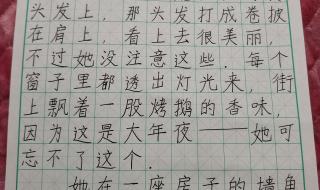 头发上，那头发打成卷披
在肩上，看上去很美丽，
不过她没注意这些．每个
窗子里都透出灯光来，街
上飘着一股烤鹅的香味，
因为这是大年夜——她可
忘不了这个．
她在一座房子的墙角